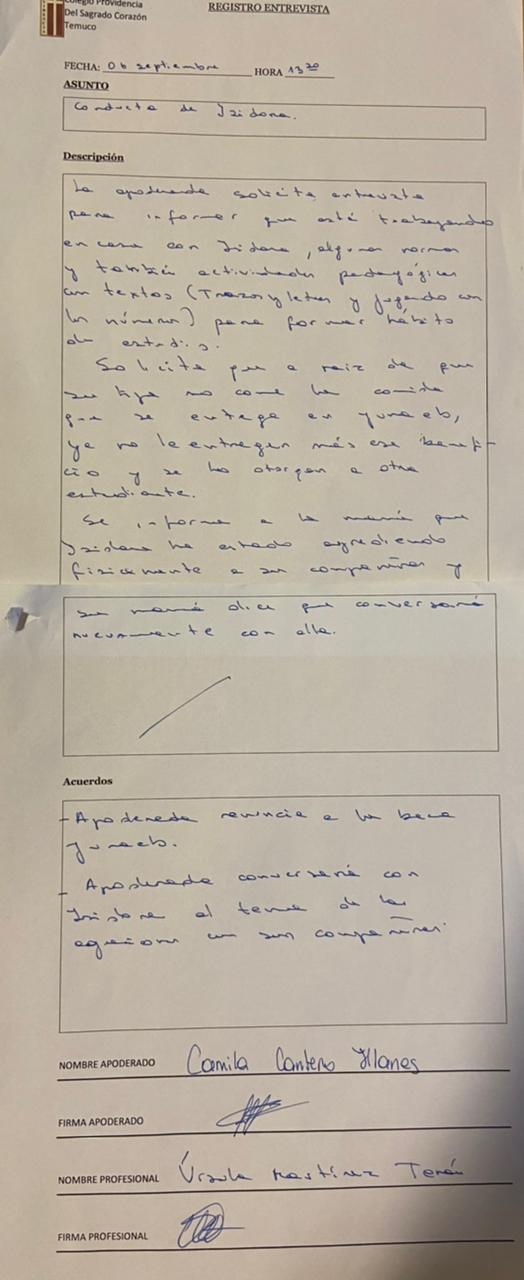 Colegio Providencia
Del Sagrado Corazón
Temuco
REGISTRO ENTREVISTA
FECHA: 06 septiembre HORA 13:20
ASUNTO
Conducta de Isidora.
Descripción
La apoderada solicita entrevista
para informar que está trabajando
en casa con Isidora, algunas normas
y también actividades pedagógicas
con textos (Trazos y letras y jugando con
los números) para formar hábito
de estudio.
Solicita que a raíz de que
su hija no come la comida
que se entrega en junaeb,
ya no le entreguen más ese benefi-
cio y se lo otorguen a otra
estudiante.
Se informa a la mamá que
Isidora ha estado agrediendo
físicamente a sus compañeras y
su mamá dice que conversará
nuevamente con ella.
Acuerdos
- Apoderada renuncia a la beca
Junaeb.
- Apoderada conversará con
Isidora el tema de las
agresiones con sus compañeras.
NOMBRE APODERADO Camila Cantero Illanes
FIRMA APODERADO
NOMBRE PROFESIONAL Úrsula Martínez Terán
FIRMA PROFESIONAL